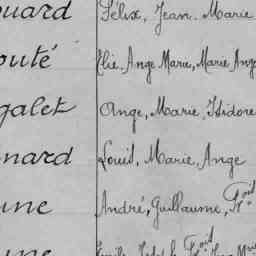 ouard Félix, Jean-Marie
outé Elie-Ange Marie, Marie Ang
galet Ange, Marie, Isidore
nard Louis, Marie, Ange
une André, Guillaume, Fçois
une